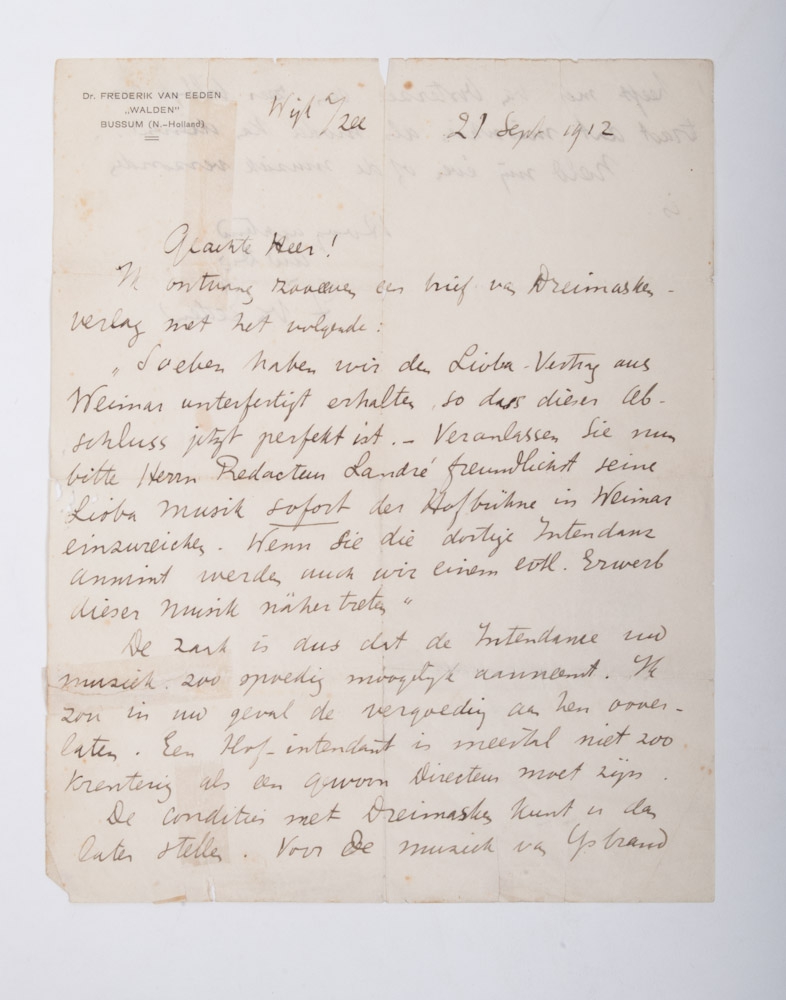 Dr. FREDERIK VAN EEDEN
„WALDEN"
BUSSUM (N.-Holland)
Wijk a/zee
21 Sept. 1912
Geachte Heer!
Ik ontvang zooeven een brief van Dreimasken-
verlag met het volgende:
„Soeben haben wir den Lioba-Vertrag aus
Weimar unterfertigt erhalten, so dass dieser Ab-
schluss jetzt perfekt ist. – Veranlassen Sie nun
bitte Herrn Redacteur Landré freundlichst seine
Lioba Musik sofort der Hofbühne in Weimar
einzureichen. Wenn Sie die dortige Intendanz
annimt werden auch wir einem evtl. Erwerb
dieser Musik näher treten"
De zaak is dus dat de Intendance uw
muziek zoo spoedig moogelijk aanneemt. Ik
zou in uw geval de vergoeding aan hen oover-
laten. Een Hof-intendant is meestal niet zoo
krenterig als een gewoon Directeur moet zijn.
De condities met Dreimasken kunt u dan
later stellen. Voor de muziek van Ysbrand